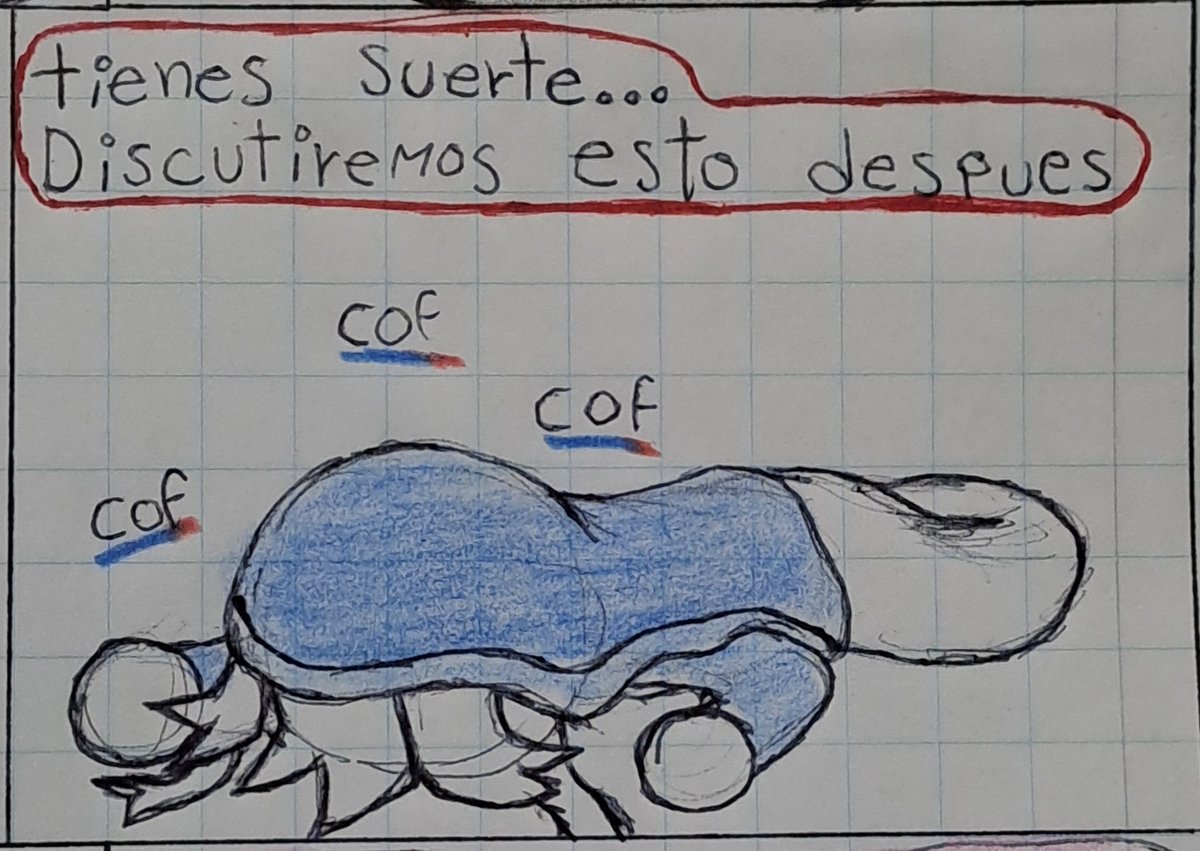 tienes suerte...
Discutiremos esto despues
cof
cof
cof